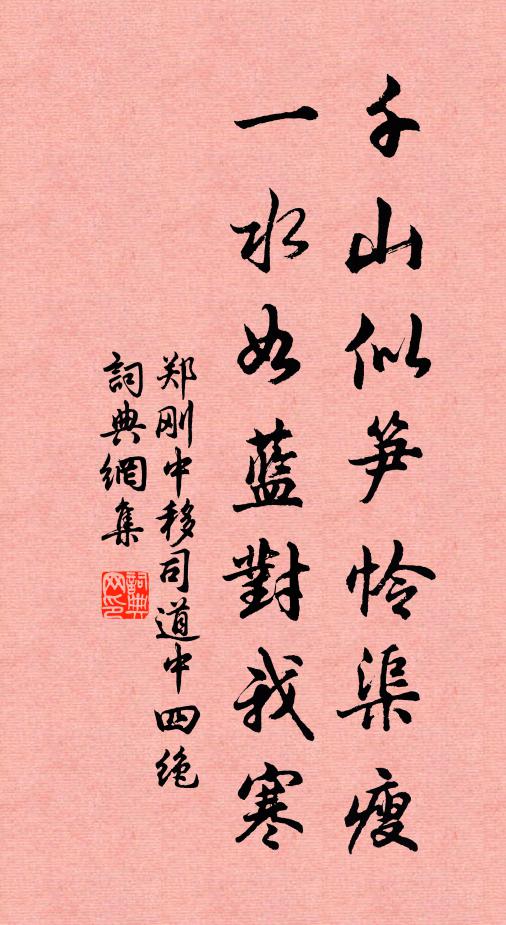 千山似笋怜渠瘦
一水如藍對我寒
郑刚中移司道中四绝
詞典網集
詞典网印